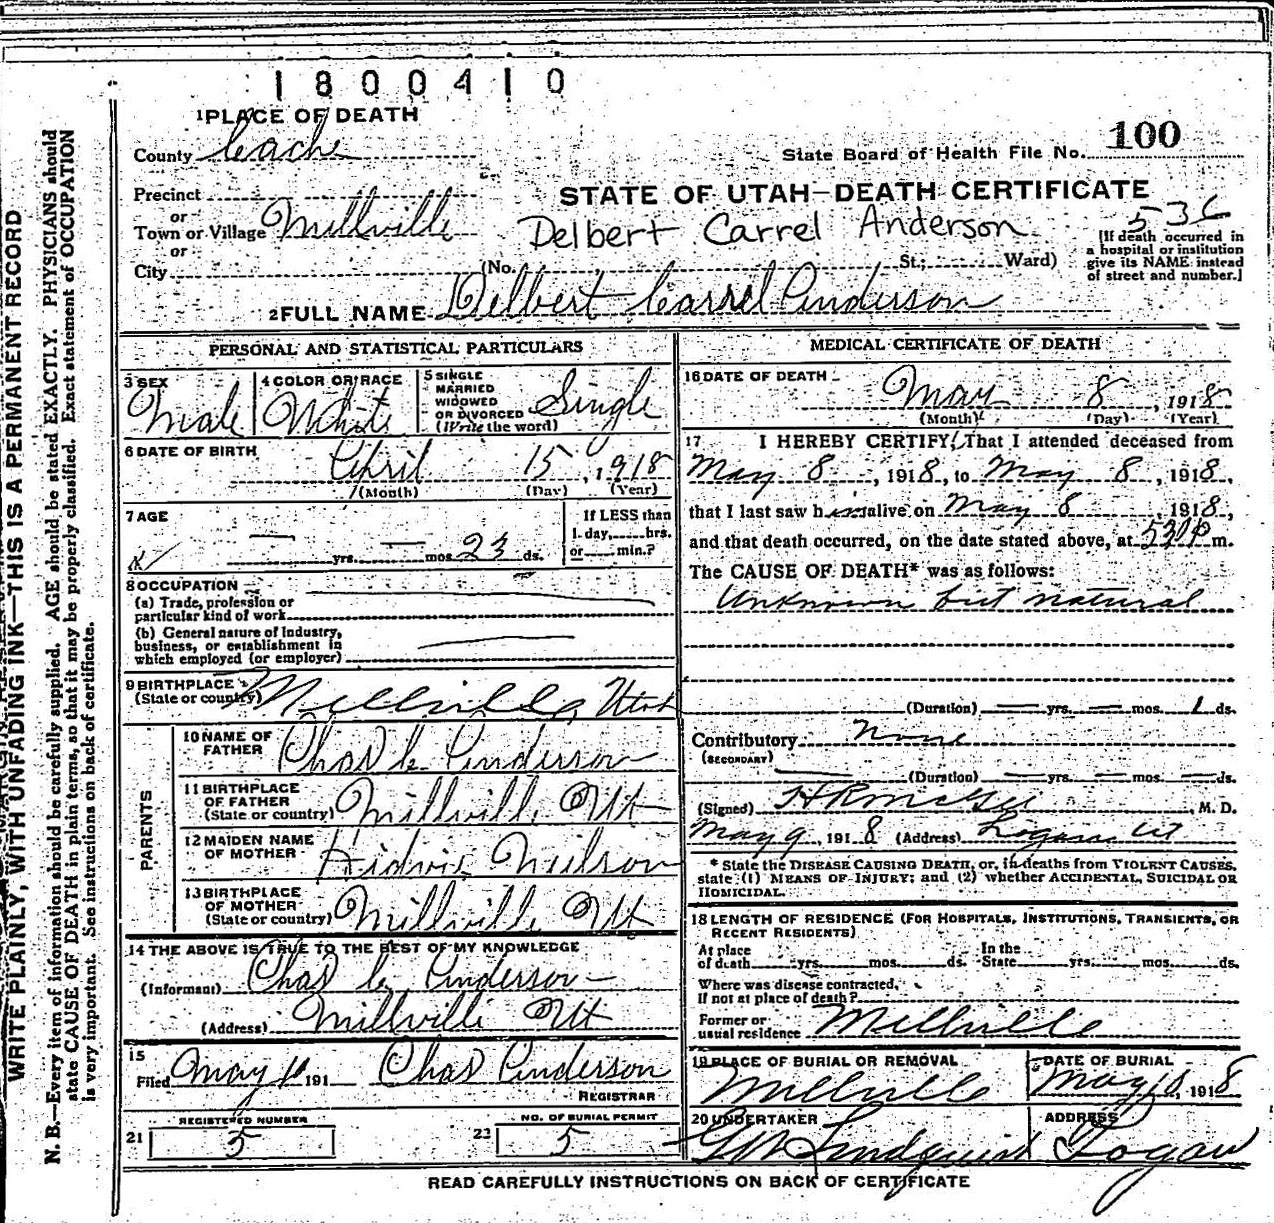 1800410
1 PLACE OF DEATH
100
County Cache
State Board of Health File No.
Precinct
STATE OF UTAH—DEATH CERTIFICATE
or
Town or Village Millville
Delbert Carrel Anderson
536
or
[If death occurred in
a hospital or institution
give its NAME instead
of street and number.]
City (No. St.; Ward)
2 FULL NAME Delbert Carrel Anderson
PERSONAL AND STATISTICAL PARTICULARS
3 SEX Male
4 COLOR OR RACE White
5 SINGLE
MARRIED
WIDOWED
OR DIVORCED
(Write the word)
Single
6 DATE OF BIRTH
April 15, 1918
(Month) (Day) (Year)
7 AGE
— yrs. — mos. 23 ds.
If LESS than
1 day, hrs.
or min.?
8 OCCUPATION
(a) Trade, profession or
particular kind of work
(b) General nature of industry,
business, or establishment in
which employed (or employer)
9 BIRTHPLACE
(State or country)
Millville, Utah
PARENTS
10 NAME OF
FATHER
Chas C. Anderson
11 BIRTHPLACE
OF FATHER
(State or country)
Millville Ut
12 MAIDEN NAME
OF MOTHER
13 BIRTHPLACE
OF MOTHER
(State or country)
Millville Ut
14 THE ABOVE IS TRUE TO THE BEST OF MY KNOWLEDGE
(Informant) Chas C. Anderson
(Address) Millville Ut
15
Filed May 10 191 Chas Anderson
REGISTRAR
REGISTERED NUMBER
21 5
NO. OF BURIAL PERMIT
22 5
MEDICAL CERTIFICATE OF DEATH
16 DATE OF DEATH
May 8, 1918
(Month) (Day) (Year)
17 I HEREBY CERTIFY, That I attended deceased from
May 8, 1918, to May 8, 1918,
that I last saw him alive on May 8, 1918,
and that death occurred, on the date stated above, at 530 P m.
The CAUSE OF DEATH* was as follows:
Unknown but natural
(Duration) — yrs. — mos. 1 ds.
Contributory None
(SECONDARY)
(Duration) — yrs. — mos. — ds.
(Signed) M. D.
May 9, 1918 (Address) Logan Ut
* State the DISEASE CAUSING DEATH, or, in deaths from VIOLENT CAUSES,
state (1) MEANS OF INJURY; and (2) whether ACCIDENTAL, SUICIDAL OR
HOMICIDAL.
18 LENGTH OF RESIDENCE (FOR HOSPITALS, INSTITUTIONS, TRANSIENTS, OR
RECENT RESIDENTS)
At place
of death yrs. mos. ds.
In the
State yrs. mos. ds.
Where was disease contracted,
if not at place of death?
Former or
usual residence Millville
19 PLACE OF BURIAL OR REMOVAL
Millville
DATE OF BURIAL
May 10, 1918
20 UNDERTAKER
Lindquist
ADDRESS
Logan
READ CAREFULLY INSTRUCTIONS ON BACK OF CERTIFICATE
WRITE PLAINLY, WITH UNFADING INK—THIS IS A PERMANENT RECORD
N. B.—Every item of information should be carefully supplied. AGE should be stated EXACTLY. PHYSICIANS should
state CAUSE OF DEATH in plain terms, so that it may be properly classified. Exact statement of OCCUPATION
is very important. See instructions on back of certificate.